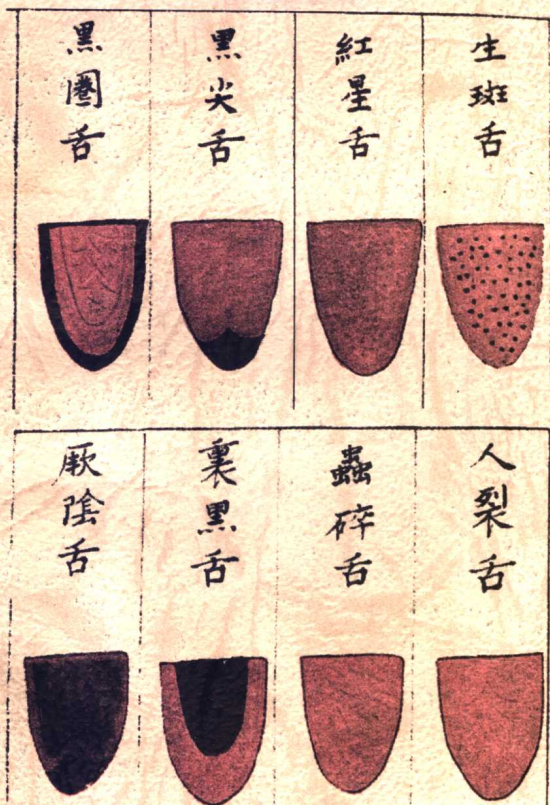 生斑舌
紅星舌
黑尖舌
黑圈舌
人裂舌
蟲碎舌
裏黑舌
厥陰舌